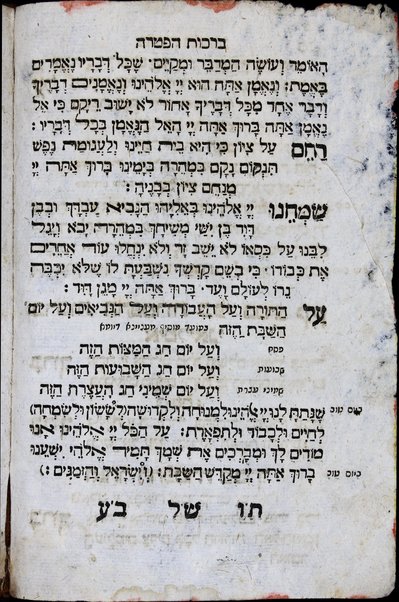 ברכות הפטרה
האומר ועושה המדבר ומקיים שכל דבריו נאמרים
באמת: ונאמן אתה הוא יי אלהינו ונאמנים דבריך
ודבר אחד מכל דבריך אחור לא ישוב ריקם כי אל
נאמן אתה ברוך אתה יי האל הנאמן בכל דבריו:
רחם על ציון כי היא בית חיינו ולעגומה נפש
תנקום נקם במהרה בימינו ברוך אתה יי
מנחם ציון בבניה:
שמחנו יי אלהינו באליהו הנביא עבדך ובבן
דוד בן ישי משיחך במהרה יבא ויגל
לבנו על כסאו לא ישב זר ולא ינחלו עוד אחרים
את כבודו: כי בשם קדשך נשבעת לו שלא יכבה
נרו לעולם ועד: ברוך אתה יי מגן דוד:
על התורה ועל העבודה ועל הנביאים ועל יום
השבת הזה
פסח ועל יום חג המצות הזה
שבועות ועל יום חג השבועות הזה
שמיני עצרת ועל יום שמיני חג העצרת הזה
ביום טוב שנתת לנו יי אלהינו למנוחה ולקדושה (ולששון ולשמחה)
לחיים ולכבוד ולתפארת: על הכל יי אלהינו אנו
מודים לך ומברכים את שמך תמיד אלהי ישענו
ביום טוב ברוך אתה יי מקדש השבת: (וישראל והזמנים:)
תו של בע